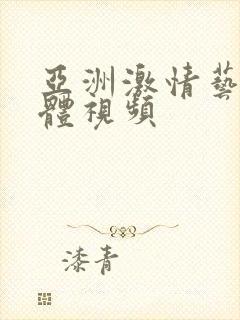 亞洲激情藝
體視頻
漆青